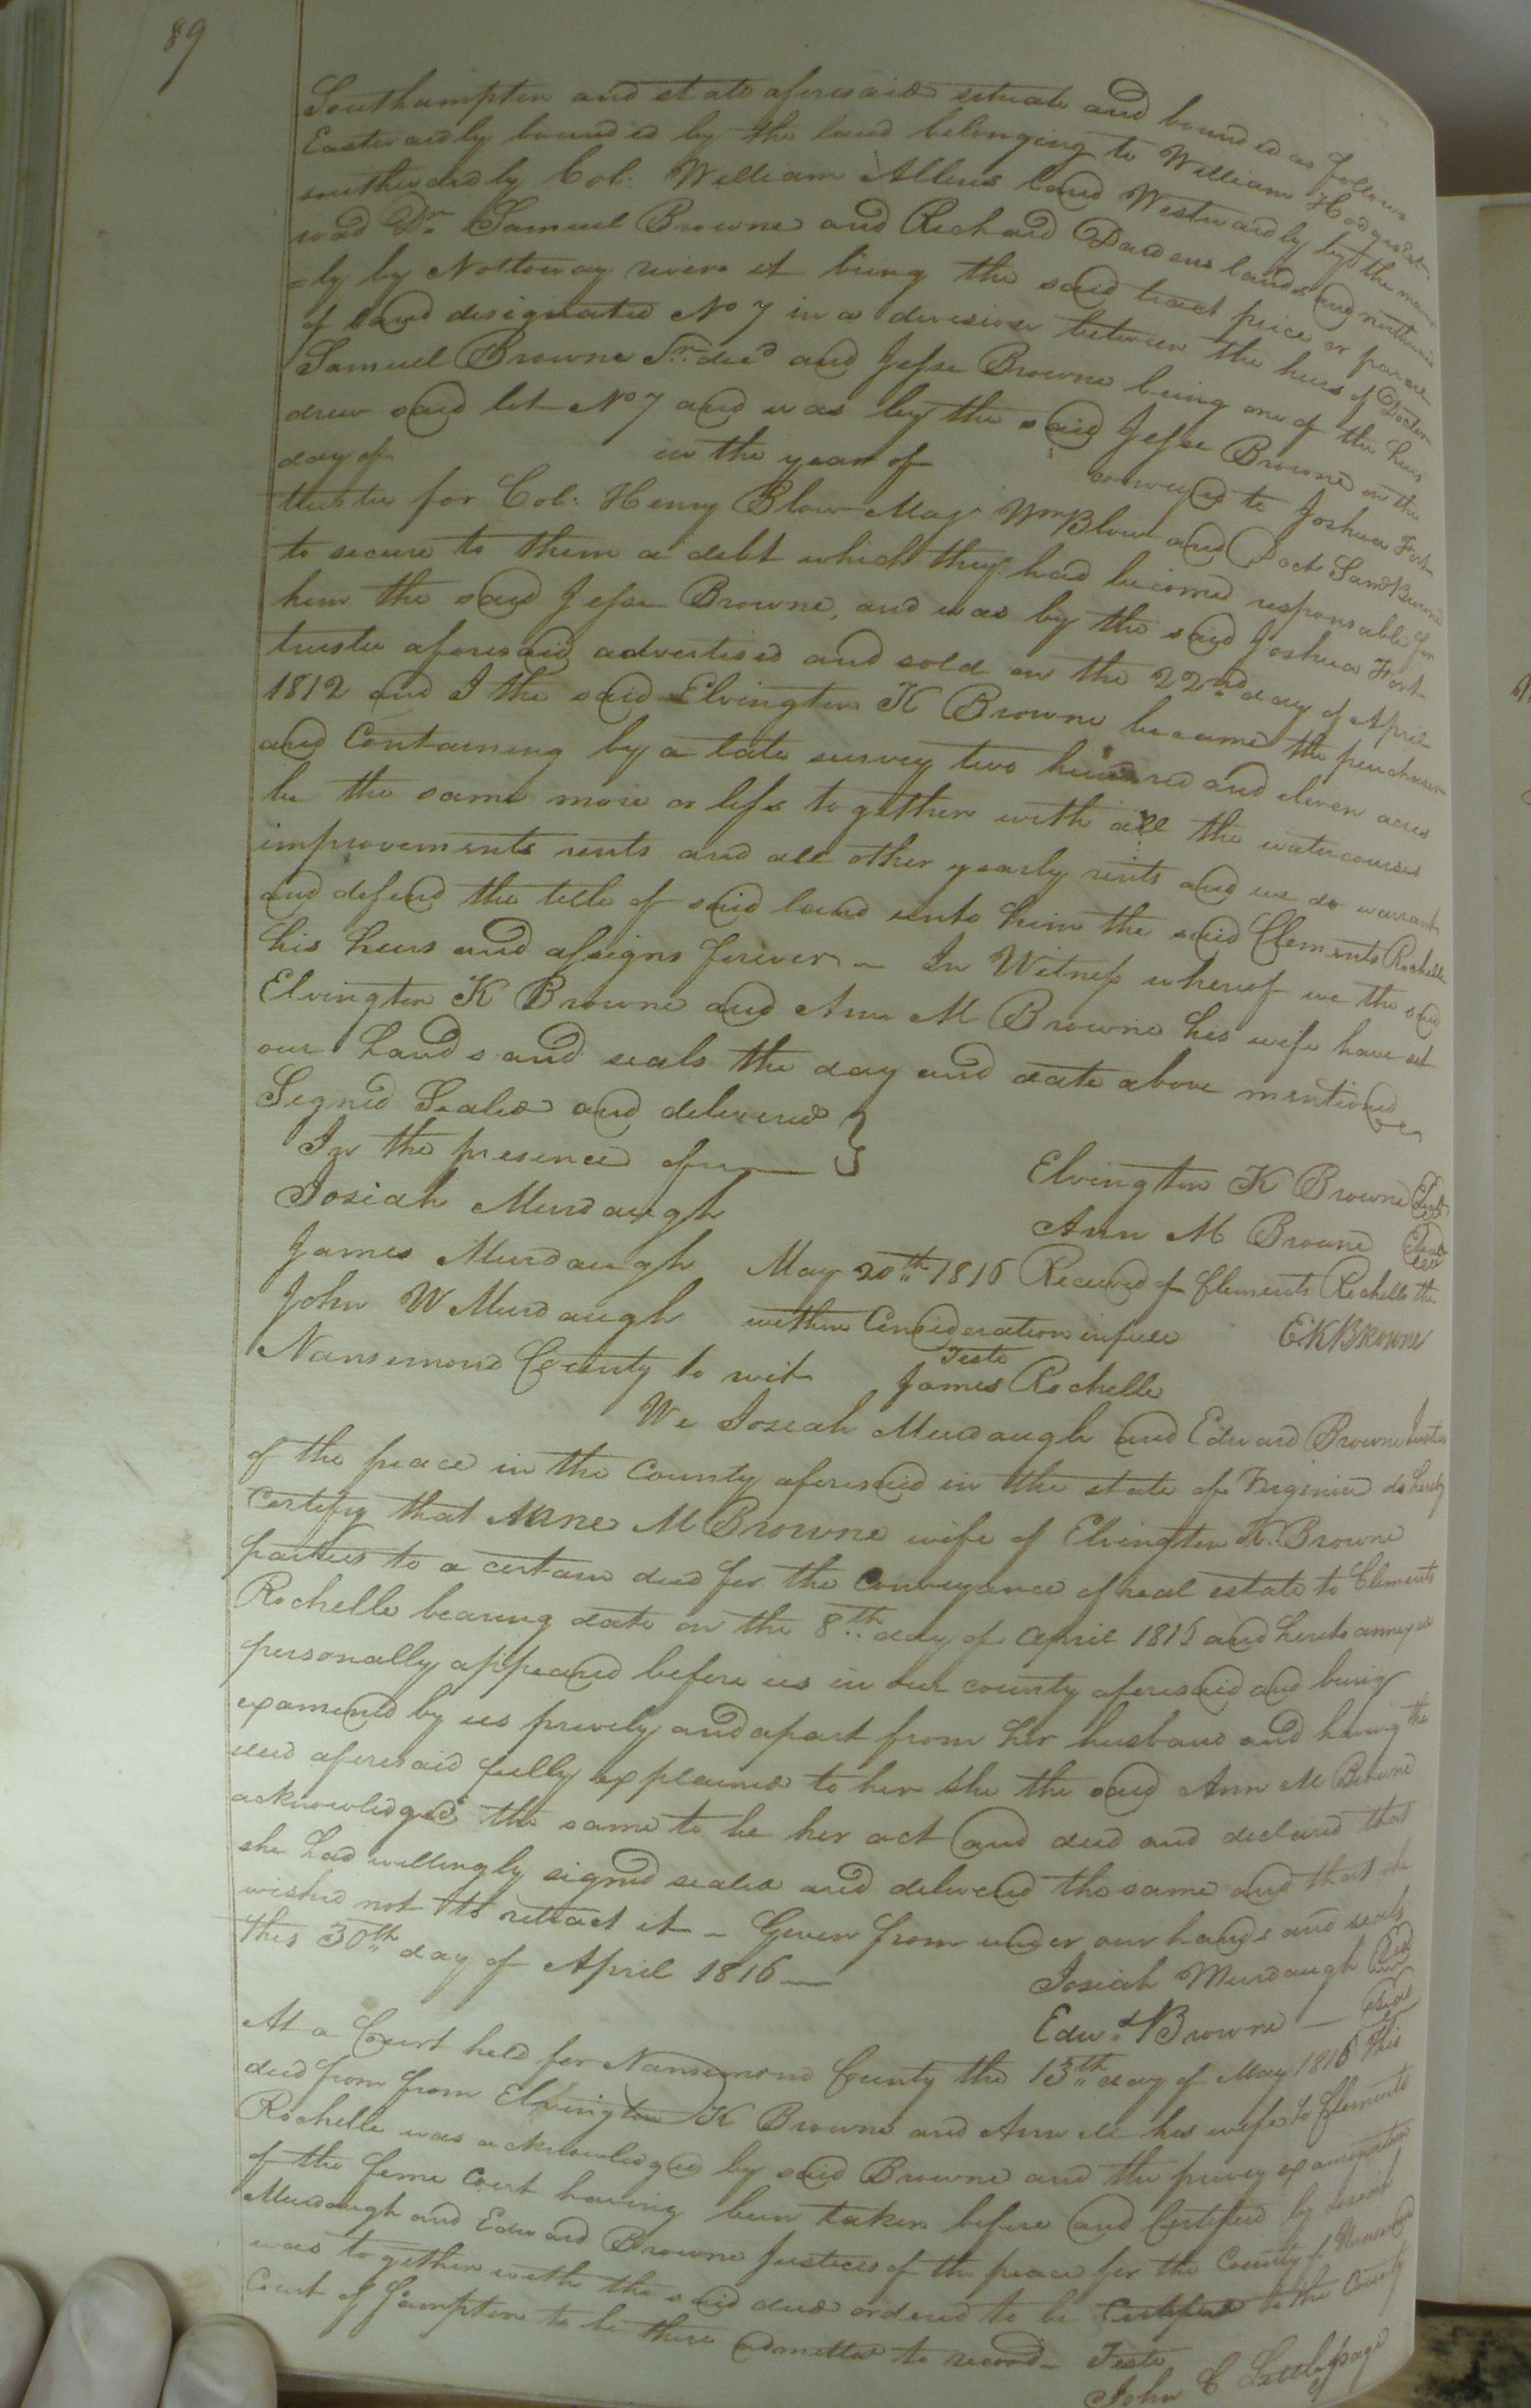 89
Southampton and state aforesaid situate and bounded as follows
Eastwardly bounded by the land belonging to William Hodges Est
southwardly Col: William Allens land Westwardly by the main
road Dr Samuel Browne and Richard Dardens lands and northward
=ly by Nottoway river it being the said tract piece or parcel
of land designated No 7 in a devision between the heirs of Doctor
Samuel Browne Sr. decd and Jesse Browne being one of the heirs
drew said lot No 7 and was by the said Jesse Browne on the
day of in the year of conveyed to Joshua Fort
trustee for Col: Henry Blow Majr Wm Blow and Doct Saml Browne
to secure to them a debt which they had become responsable for
him the said Jesse Browne, and was by the said Joshua Fort
trustee aforesaid advertised and sold on the 22nd day of April
1812 and I the said Elvington K Browne became the purchaser
and Containing by a late survey two hundred and eleven acres
be the same more or less together with all the watercourses
improvements rents and all other yearly rents and we do warrant
and defend the title of said land unto him the said Clements Rochelle
his heirs and assigns forever - In Witness whereof we the said
Elvington K Browne and Ann M Browne his wife have set
our hands and seals the day and date above mentioned
Signed Sealed and delivered }
In the presence of us
Elvington K Browne Seal
Josiah Murdaugh
Ann M Browne Seal
James Murdaugh May 20th 1816 Received of Clements Rochelle the
John W Murdaugh within Consideration in full E.K Browne
Teste
Nansemond County to wit James Rochelle
We Josiah Murdaugh and Edward Browne Justices
of the peace in the County aforesaid in the state of Virginia do hereby
Certify that Anne M Browne wife of Elvington K. Browne
parties to a certain deed for the Conveyance of real estate to Clements
Rochelle bearing date on the 8th day of April 1816 and hereto annexed
personally appeared before us in our county aforesaid and being
examined by us privily and apart from her husband and having the
deed aforesaid fully explained to her she the said Ann M Browne
acknowledged the same to be her act and deed and declared that
she had willingly signed sealed and delivered the same and that she
wished not to retract it - Given from under our hands and seals
this 30th day of April 1816
Josiah Murdaugh Seal
Edwd Browne Seal
At a Court held for Nansemond County the 13th day of May 1816 This
deed from from Elvington K Browne and Ann M his wife to Clements
Rochelle was acknowledged by said Browne and the privy examination
of the feme Covert having been taken before and Certified by Josiah
Murdaugh and Edward Browne Justices of the peace for the County of Nansemond
was together with the said deed ordered to be Certified to the County
Court of Sampton to be there admitted to record - Teste
John C Littlepage